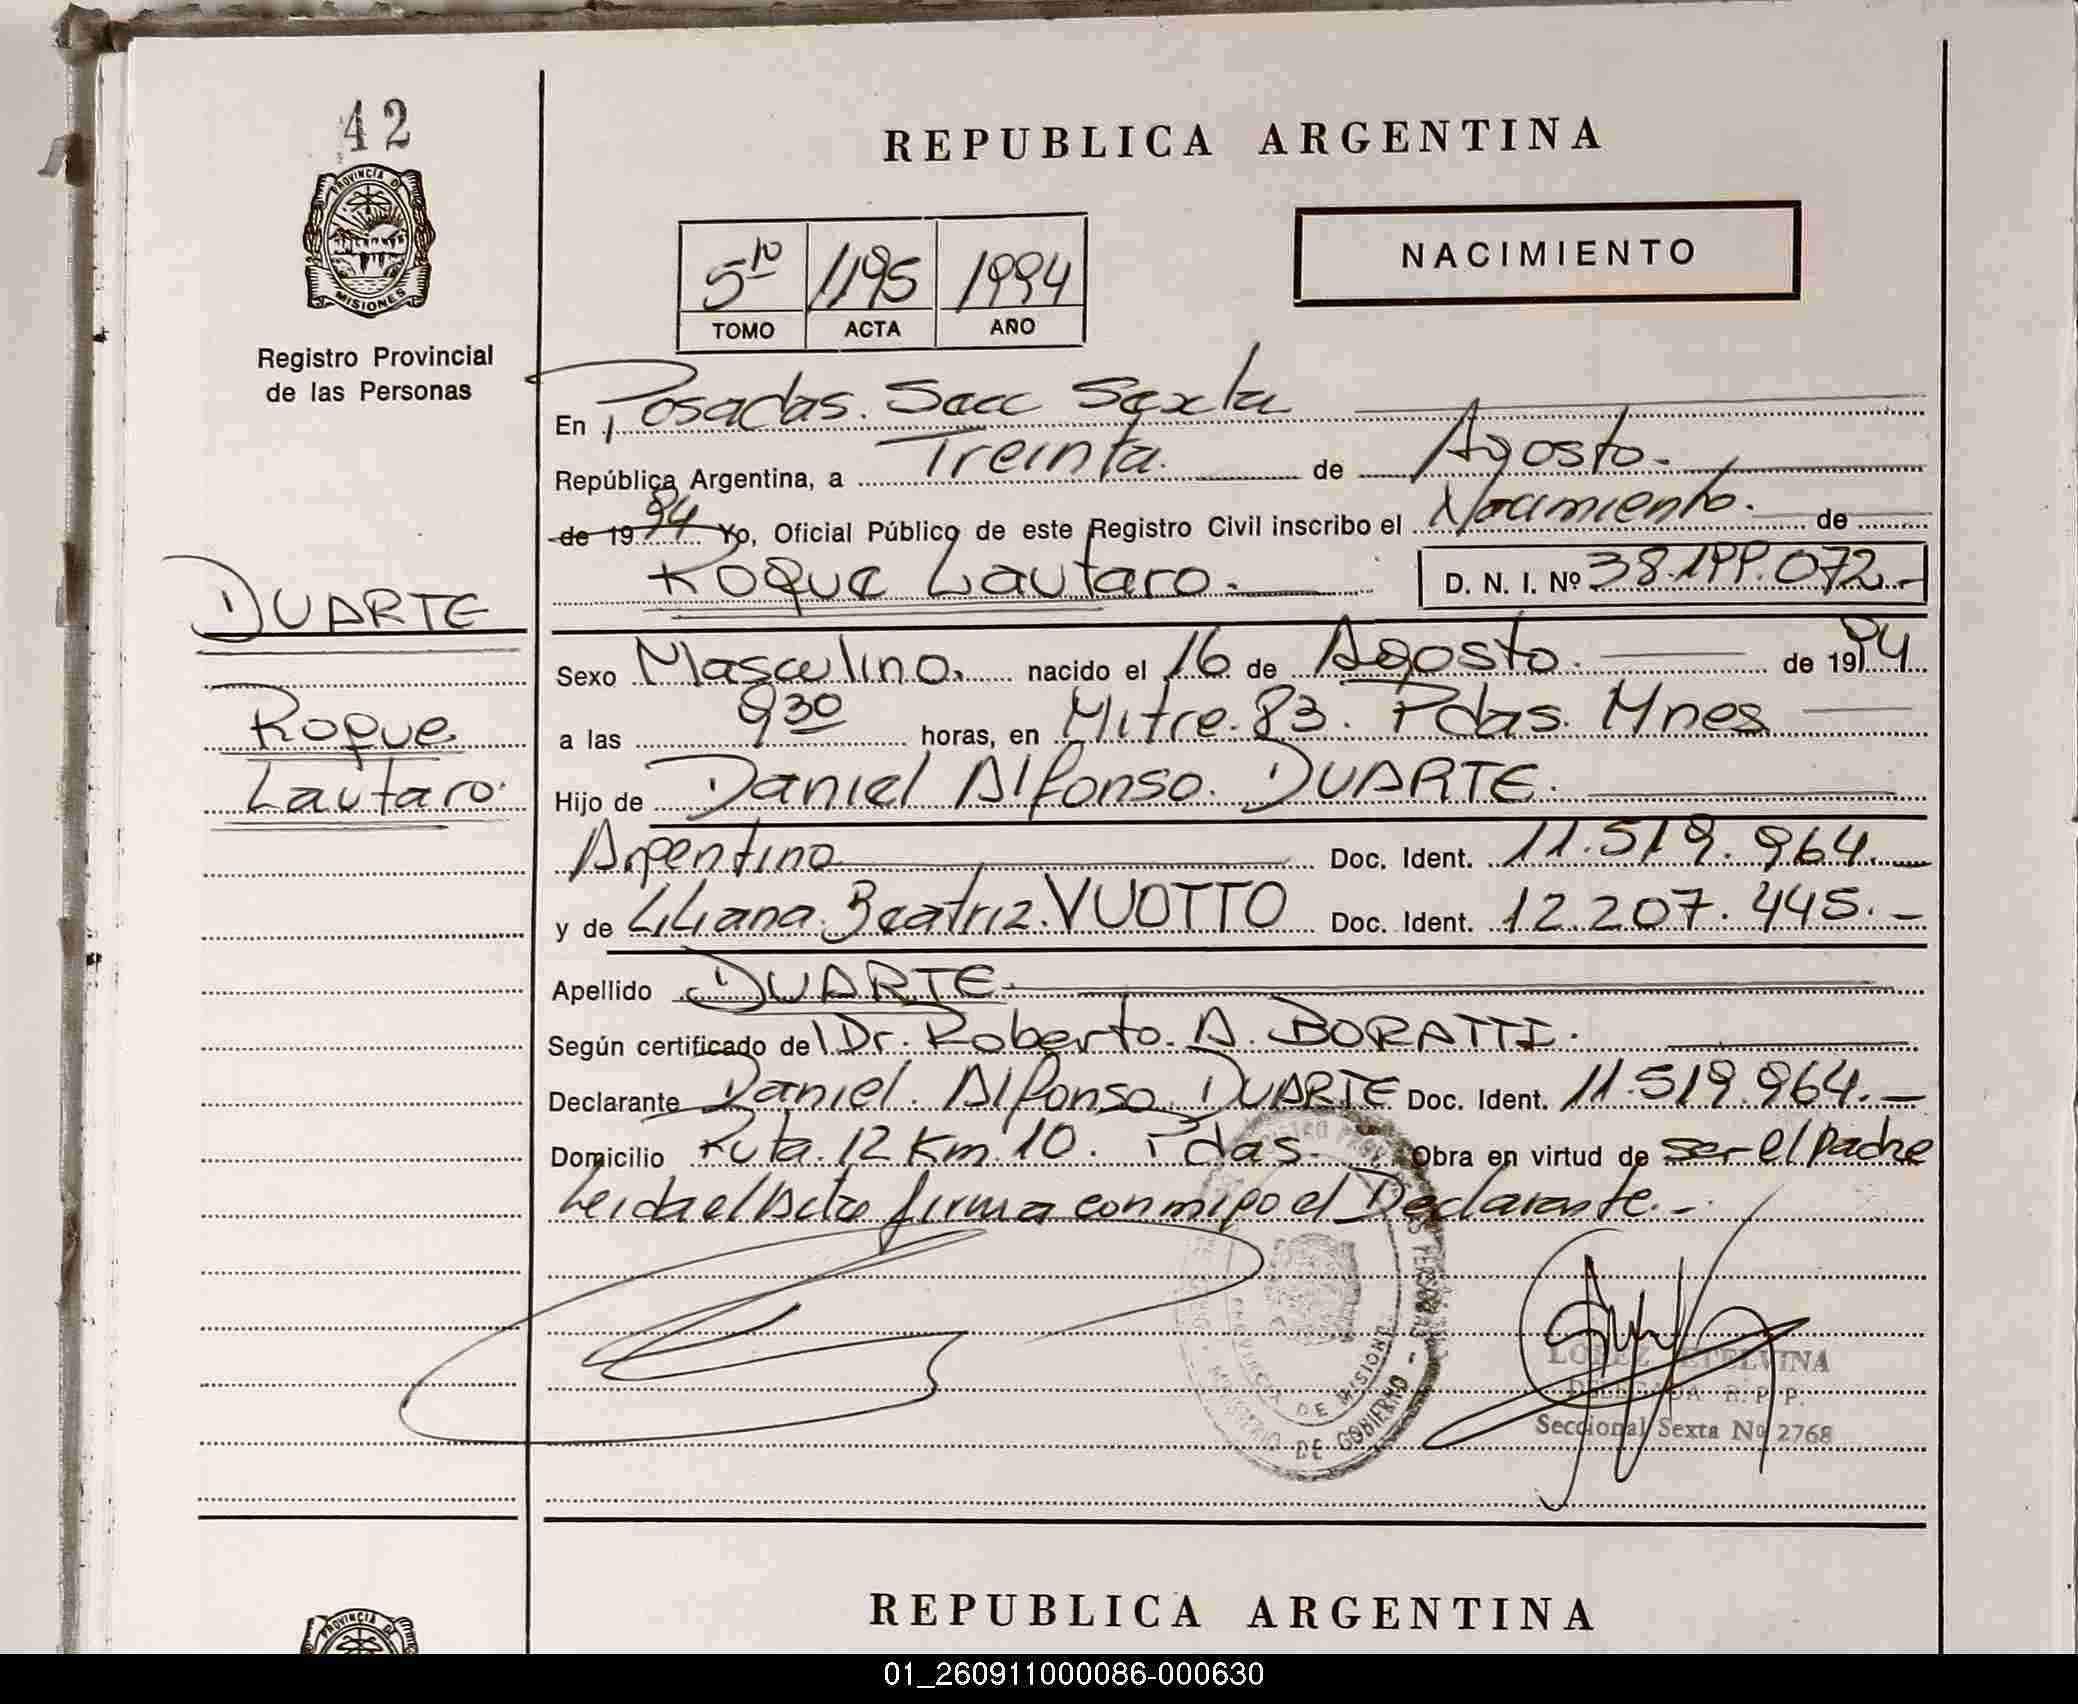 42
PROVINCIA DE
MISIONES
Registro Provincial
de las Personas
DUARTE
Roque
Lautaro.
REPUBLICA ARGENTINA
NACIMIENTO
5to 1195 1994
TOMO ACTA AÑO
En Posadas. Secc Sexta
República Argentina, a Treinta. de Agosto.
de 1994 Yo, Oficial Público de este Registro Civil inscribo el Nacimiento. de
Roque Lautaro. D. N. I. Nº 38.199.072.-
Sexo Masculino. nacido el 16 de Agosto. de 1994
a las 9 30 horas, en Mitre. 83. Pdas. Mnes
Hijo de Daniel Alfonso. DUARTE.
Argentino Doc. Ident. 11.519.964.-
y de Liliana. Beatriz. VUOTTO Doc. Ident. 12.207.445.-
Apellido DUARTE
Según certificado de Dr. Roberto. A. BORATTI.
Declarante Daniel. Alfonso. DUARTE Doc. Ident. 11.519.964.-
Domicilio Ruta. 12 Km. 10. Pdas. Obra en virtud de ser el padre
Leida el Acta firma conmigo el Declarante.-
PROVINCIA DE MISIONES
MINISTERIO DE GOBIERNO -
LOPEZ ETELVINA
DELEGADA R. P. P.
Seccional Sexta Nº 2768
REPUBLICA ARGENTINA
PROVINCIA
01_260911000086-000630